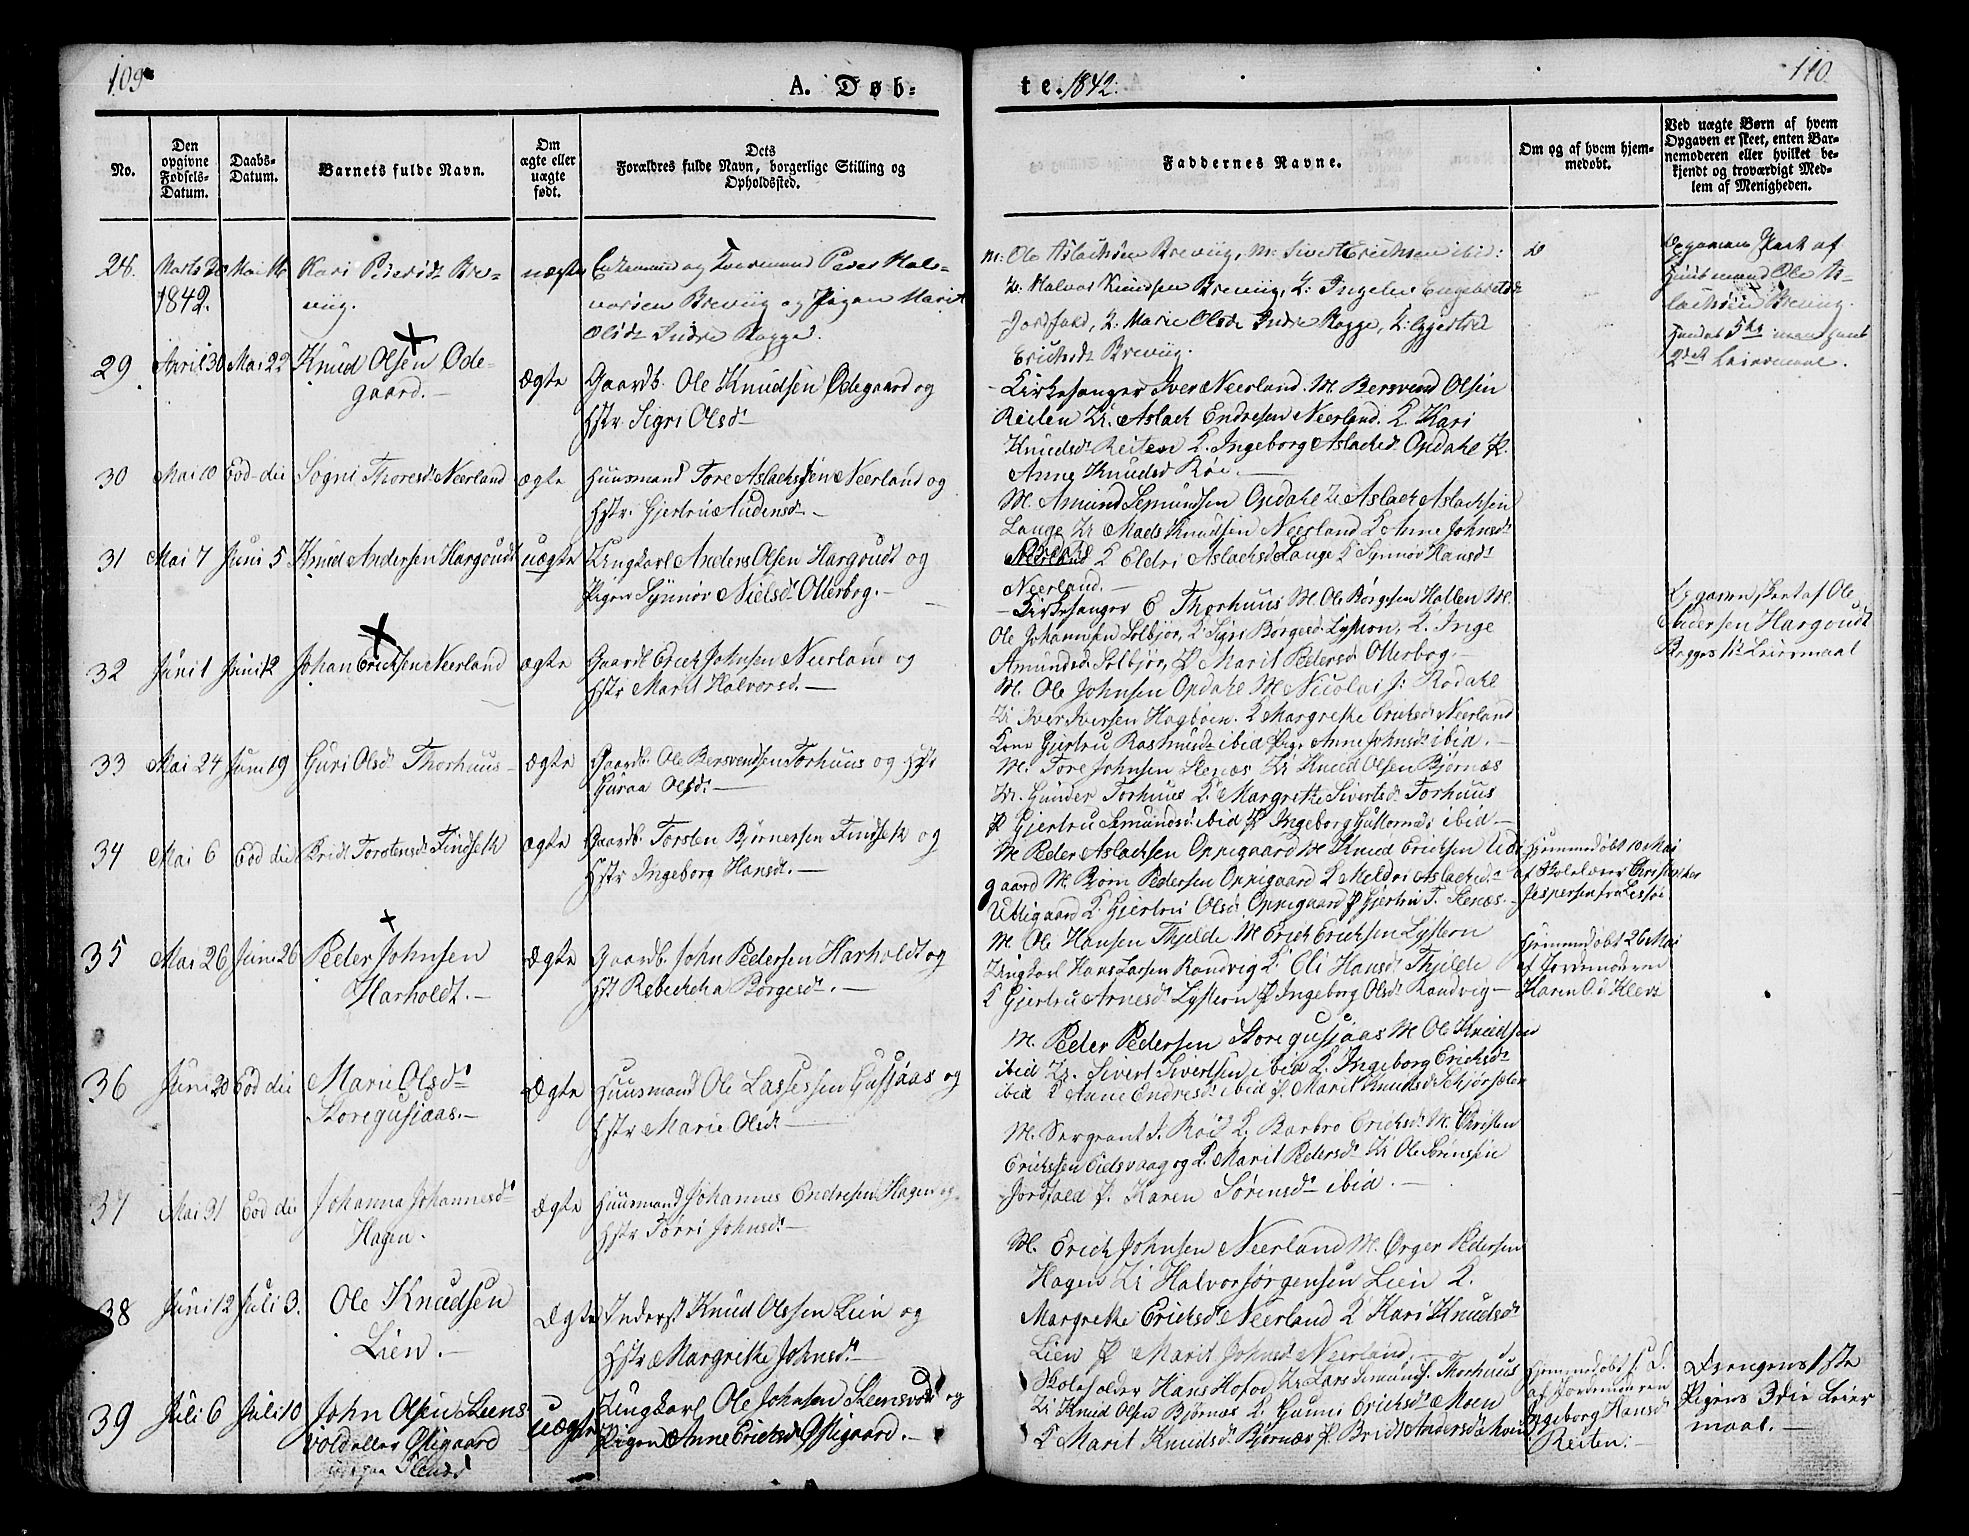 109
A. Døb-
te. 1842.
110.
No.
Den opgivne Fødsels-Datum.
Daabs-Datum.
Barnets fulde Navn.
Om ægte eller uægte født.
Dets Forældres fulde Navn, borgerlige Stilling og Opholdsted.
Faddernes Navne.
Om og af hvem hjemmedøbt.
Ved uægte Børn af hvem Opgaven er skeet, enten Barnemoderen eller hvilket bekjendt og troværdigt Medlem af Menigheden.
28. Marts 1842. Mai 16 Kari Pedersdr Breviig. uægte
Enkemand og Peder Halvorsen Breviig og Pigen Marit
Olsdr Indre Ragge.
M: Ole Aslachsen Breviig, M: Sivert Erichsen ibid:
U: Halvor Knudsen Breviig, K: Ingeleu Engebretsdr
Jordfald, K: Marie Olsdr Indre Ragge, K: Gjertrud
Erichsdr Breviig.
Opgaven skeet af
Huusmand Ole Aslachsen Breviig.
29 April 30 Mai 22 Knud Olsen Ødegaard.- Ægte
Gaardb. Ole Knudsen Ødegaard og
Hstr. Sigri Olsdr
Kirkesanger Iver Neerland. M. Bersvend Olsen
Reiten U. Aslach Endresen Neerland. K. Kari
Knudsdr Reiten K. Ingeborg Aslachsdr Opdahl P.
Anne Knudsd Röe.
30 Mai 10 Eod die Sogni Thoresdr Neerland ægte
Huusmand Tore Aslachsen Neerland og
Hstr. Gjertru Audensdr
M. Amund Semundsen Opdahl U Aslach Aslachsen
Lange U Mads Knudsen Neerland K Anne Johnsdr
Opdahl K Eldri Aslachsdr Lange K Synnøv Hansdr
Neerland.
31 Mai 7 Juni 5 Knud Andersen Hargoudt uægte
Ungkarl Anders Olsen Hargoudt og
Pigen Synnøv Nielsdr Otterbog.-
Kirkesanger E Thorhuus M. Ole Börgesen Hallen M.
Ole Johannesen Solbjör, K. Sigri Börgesdr Lystion, K. Inge
Amundsdr Solbjör, P Marit Pedersdr Otterbog.-
Opgaven skeet af Ole
Andersen Hargoudt
32 Juni 1 Juni 12 Johan Erichsen Neerland ægte
Gaardb Erich Johnsen Neerland og
Hstr Marit Halvorsd.-
M. Ole Johnsen Opdahl M Nicolai J: Rödahl
U Iver Iversen Hagböen. K Margrethe Erichsdr Neerland
Kone Gjertru Rasmusdr ibid Pige Anne Johnsdr ibid.-
33 Mai 24 Juni 19 Guri Olsdr Thorhuus- ægte
Gaardb. Ole Bersvendsen Torhuus og Hstr
Guraa Olsdr-
M. Tore Johnsen Stenæs U Knud Olsen Bjørnæs
U. Gunder Torhuus K. Margrethe Sivertsdr Torhuus
P Gjertru Semundsdr ibid P Ingeborg Guttormsdr ibid-
34 Mai 6 Eod die Bridt Torstensdr Findseth ægte
Gaardb. Torsten Bjørnersen Findseth og
Hstr Ingeborg Hansdr-
M Peder Aslachsen Oppigaard M Knud Erichsen Utigaard
M. Bjørn Pedersen Oppigaard K Meldri Aslachsdr
Utigaard K. Gjertru Olsdr Oppigaard P Gjertru T. Stenæs.-
Hjemmedøbt 10 Mai
af Skolelærer Christopher
Jespersen fra Lessøe
35 Mai 26 Juni 26 Peder Johnsen Harholdt.- Ægte
Gaardb. John Pedersen Harholdt og
Hst Rebechcha Börgesdr.-
M. Ole Hansen Thjelde M Erich Erichsen Lystion
Ungkarl Hans Larsen Randvig K. Oli Hansdr Thjelde
K Gjertru Arnesdr Lystion P Ingeborg Olsdr Randvig-
Hjemmedøbt 26 Mai
af Jordemoderen
Karen O. Kleve
36 Juni 20 Eod die Marie Olsdr Storegusjaas.- Ægte
Huusmand Ole Lassessen Gusjaas og
Hstr Marie Olsdr-
M. Peder Pedersen Storegusjaas M Ole Knudsen
ibid U. Sivert Sivertsen ibid K. Ingeborg Erichsdr
ibid K Anne Endresdr ibid P. Marit Knudsdr Schjørsæter
37 Mai 31 Eod die Johanna Johannesdr Hagen. ægte
Huusmand Johannes Endresen Hagen og
Hstr Torri Johnsdr-
M. Sergeant J. Röe K. Barbro Erichsdr M. Christen
Erichssen Eidsvaag og K. Marit Pedersdr U Ole Sörensen
Jordfald P. Karen Sörensdr ibid.-
38 Juni 12 Juli 3. Ole Knudsen Lien.- Ægte
Inderst Knud Olssen Lien og
Hstr Margrethe Johnsdr-
M. Erich Johnsen Neerland M. Örger Pedersen
Hagen U Halvor Jørgensen Lien K.
Margrethe Erichsdr Neerland K Kari Knudsdr
Lien P Marit Johnsdr Neerland.
39 Juli 6 Juli 10 John Olsen Steensvold eller Østigaard uægte
Ungkarl Ole Johnsen Steensvold og
Pigen Anne Erichsdr Østigaard.-
Skoleholder Hans Hofoe U Lars Semunds. Thorhuus
U Knud Olsen Bjørnæs K. Gunni Erichsdr Moen
K Marit Knudsdr Bjørnæs P Bridt Andersdr
Hjemmedøbt
af Jordemoderen
Ingeborg Hansdr
Reiten.-
Drengens 1ste
Pigens 3die Leiermaal.-